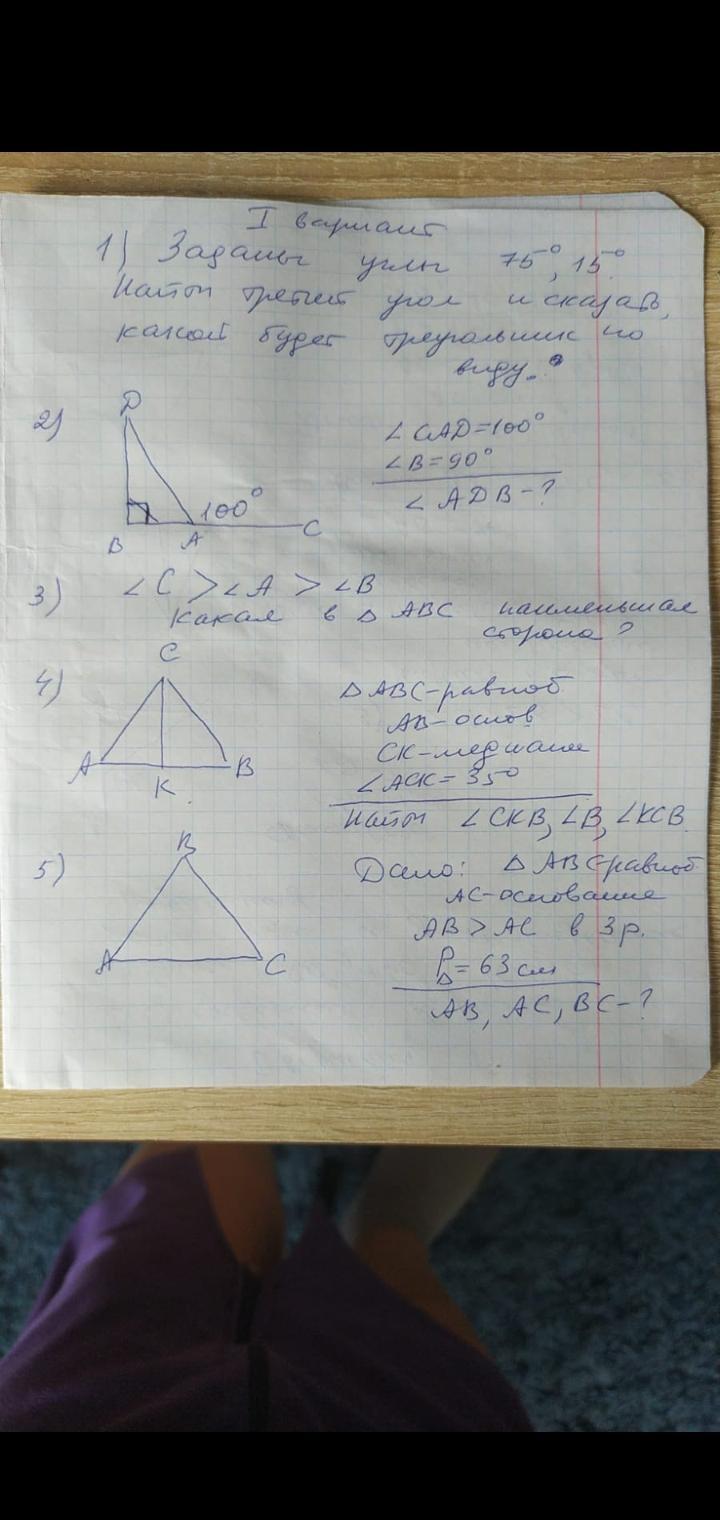 I вариант
1) Заданы углы 75°, 15°.
Найти третий угол и сказать,
какой будет треугольник по
виду.
2) D
∠CAD=100°
∠B=90°
100°
∠ADB-?
B A C
3) ∠C > ∠A > ∠B
Какая в △ABC наименьшая
сторона?
4) C
△ABC-равноб
AB-основ
CK-медиана
∠ACK=35°
A K B
Найти ∠CKB, ∠B, ∠KCB.
5) B
Дано: △ABC-равноб
AC-основание
AB > AC в 3 р.
A C
P△=63 см
AB, AC, BC-?